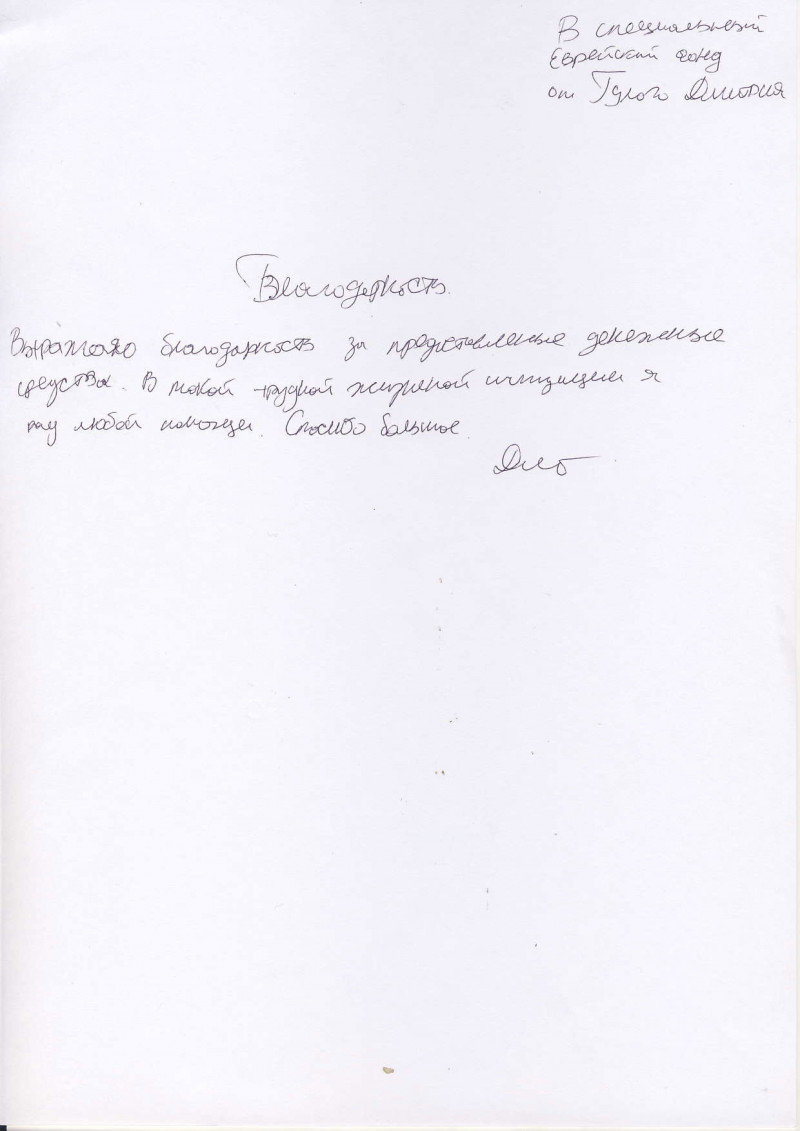 В специальный
Еврейский фонд
от Гулого Дмитрия
Благодарность.
Выражаю благодарность за предоставленые денежные
средства. В такой трудной жизненой ситуации я
рад любой помощи. Спасибо большое